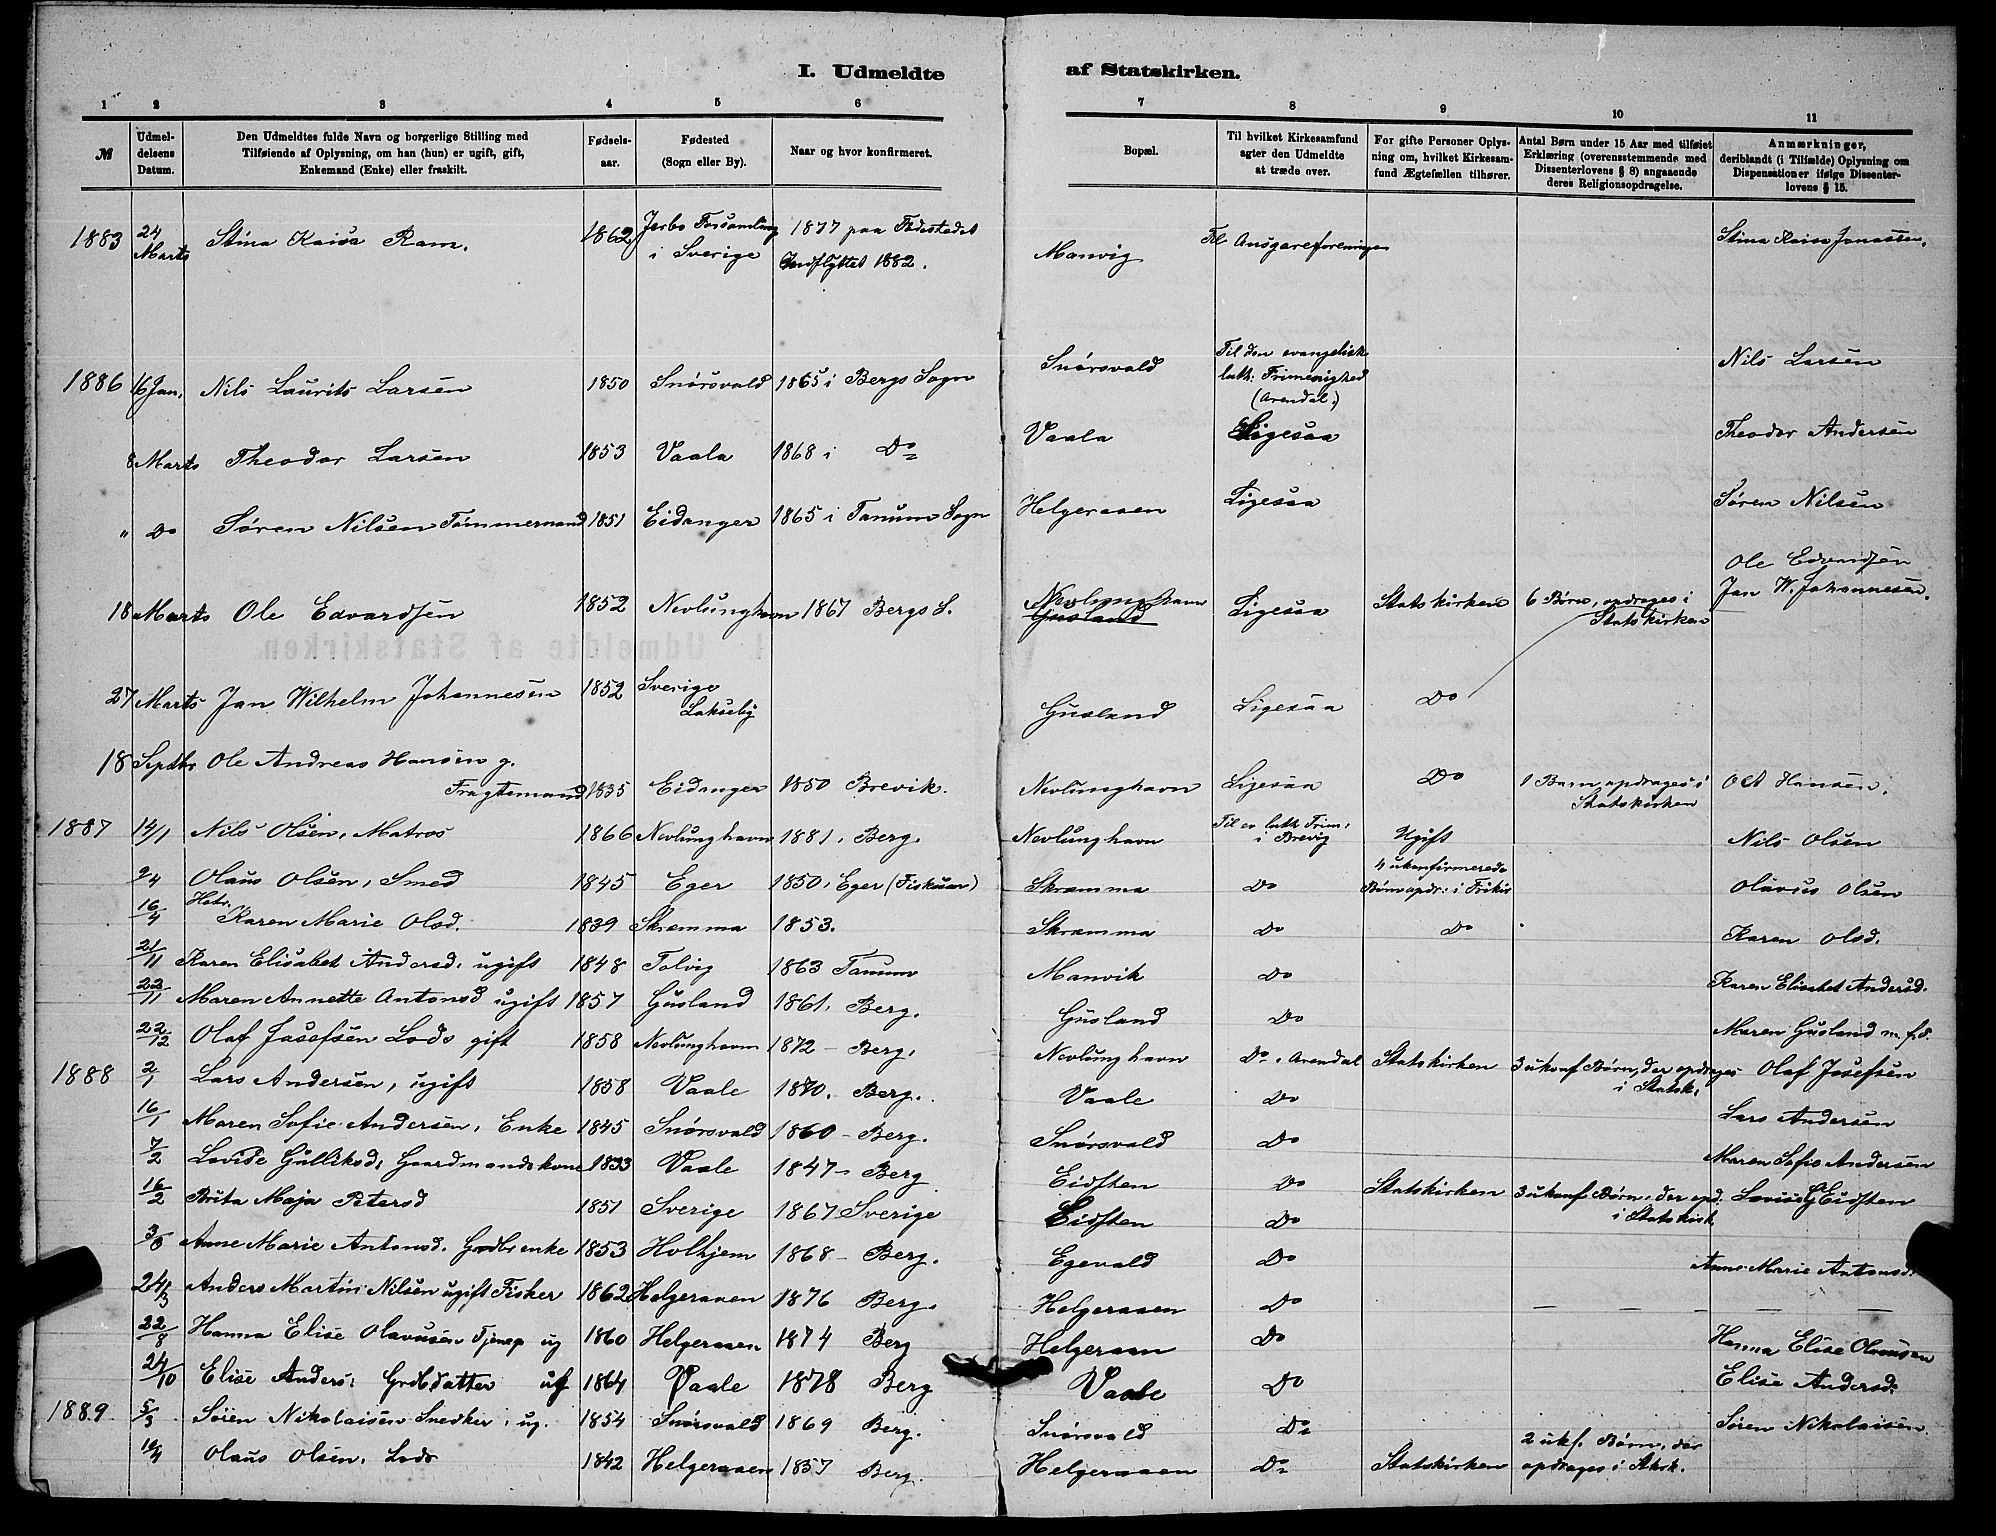 I. Udmeldte af Statskirken.
1 2 3 4 5 6 7 8 9 10 11
№
Udmel-
delsens
Datum.
Den Udmeldtes fulde Navn og borgerlige Stilling med
Tilføiende af Oplysning, om han (hun) er ugift, gift,
Enkemand (Enke) eller fraskilt.
Fødsels-
aar.
Fødested
(Sogn eller By).
Naar og hvor konfirmeret.
Bopæl.
Til hvilket Kirkesamfund
agter den Udmeldte
at træde over.
For gifte Personer Oplys-
ning om, hvilket Kirkesam-
fund Ægtefællen tilhører.
Antal Børn under 15 Aar med tilføiet
Erklæring (overensstemmende med
Dissenterlovens § 8) angaaende
deres Religionsopdragelse.
Anmærkninger,
deriblandt (i Tilfælde) Oplysning om
Dispensationer ifølge Dissenter-
lovens § 15.
1883 24 Marts Stina Kaisa Ram. 1862 Jerbo Forsamling i Sverige 1877 paa Fødestedet Indflyttet 1882. Manvig Til Ansgareforeningen Stina Kaisa Jonassen.
1886 16 Jan. Nils Laurits Larsen 1850 Snørsvald 1865 i Bergs Sogn Snørsvald Til den evangelisk luth: Frimenighed (Arendal.) Nils Larsen
8 Marts Theodor Larsen 1853 Vaala 1868 i Do Vaala Ligesaa Theodor Andersen
" Do Søren Nilsen Tømmermand 1851 Eidanger 1865 i Tanum Sogn Helgeraaen Ligesaa Søren Nilsen
18 Marts Ole Edvardsen 1852 Nevlunghavn 1867 Bergs S. Nevlunghavn Gusland Ligesaa Statskirken 6 Børn, opdrages i Statskirken Ole Edvardsen
27 Marts Jan Wilhelm Johannesen 1852 Sverige Lakseby Gusland Ligesaa Do Jan W. Johannesen.
18 Septbr Ole Andreas Hansen g. Fragtemand 1835 Eidanger 1850 Brevik. Nevlunghavn Ligesaa Do 1 Barn opdrages i Statskirken O A Hansen.
1887 14/1 Nils Olsen, Matros 1866 Nevlunghavn 1881, Berg. Nevlunghavn Til ev luth Frim: i Brevig Ugift Nils Olsen
2/4 Olaus Olsen, Smed 1845 Eger 1850, Eger (Fiskum) Skramma Do 4 ukonfirmerede Børn opdr: i Frikir Olavus Olsen
16/4 Hstr. Karen Marie Olsd. 1839 Skramma 1853. Skramma Do Do Karen Olsd.
21/11 Karen Elisabet Andersd. ugift 1848 Tolvig 1863 Tanum Manvik Do Karen Elisabet Andersd.
22/11 Maren Annette Antonsd ugift 1857 Gusland 1861, Berg. Gusland Do Maren Gusland m. f. P.
22/12 Olaf Josefsen Lods gift 1858 Nevlunghavn 1872 - Berg. Nevlunghavn Do. Arendal Statskirken 3 ukonf Børn, der opdrages i Statsk. Olaf Josefsen
1888 2/1 Lars Andersen, ugift 1858 Vaale 1870. Berg. Vaale Do Lars Andersen
16/1 Maren Sofie Andersen, Enke 1845 Snørsvald 1860 - Berg. Snørsvald Do Maren Sofie Andersen
7/2 Lovise Gulliksd, Gaardmandskone 1833 Vaale 1847 - Berg Eidsten Do Statskirken 3 ukonf Børn, der opd. i Statskirk Lovise G Eidsten
16/2 Brita Maja Petersd 1851 Sverige 1867 Sverige Eidsten Do
3/3 Anne Marie Antonsd. Grdbr enke 1853 Holhjem 1868 - Berg. Egevald Do Anne Marie Antonsd.
24/3 Anders Martin Nilsen ugift Fisker 1862 Helgeraaen 1876 Berg. Helgeraaen Do — — —
22/8 Hanna Elise Olavusen Tjenep ug 1860 Helgeraaen 1874 Berg Helgeraaen Do Hanna Elise Olausen
24/10 Elise Anders: Grdbdatter ug 1864 Vaale 1878 Berg Vaale Do Elise Andersd.
1889 5/3 Søren Nikolaisen Snedker, ug. 1854 Snørsvald 1869 Berg. Snørsvald Do Søren Nikolaisen
10/4 Olaus Olsen, Lods 1842 Helgeraaen 1857 Berg. Helgeraaen Do Statskirken 2 ukf. Børn, der opdrages i Stksk.